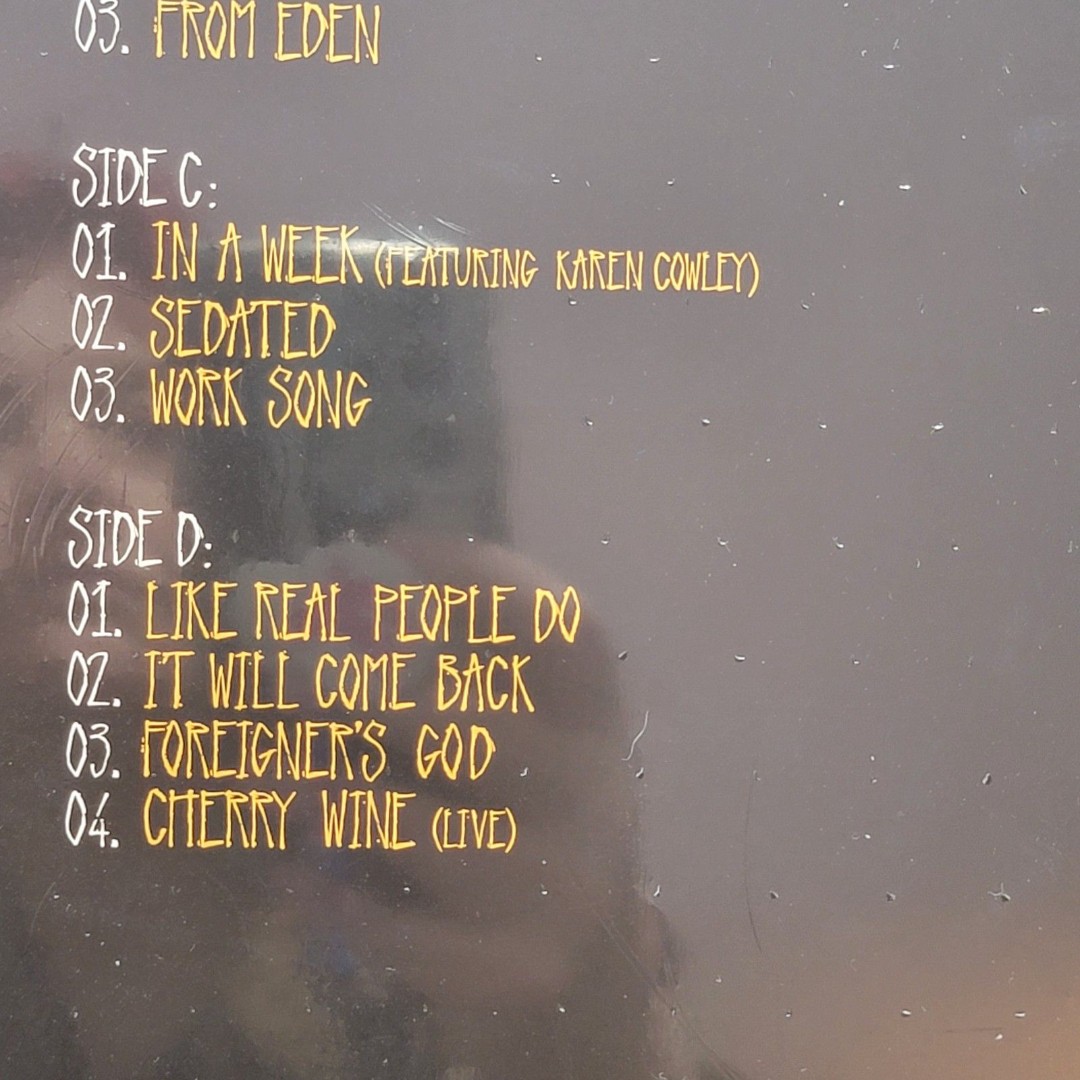 03. FROM EDEN
SIDE C:
01. IN A WEEK (FEATURING KAREN COWLEY)
02. SEDATED
03. WORK SONG
SIDE D:
01. LIKE REAL PEOPLE DO
02. IT WILL COME BACK
03. FOREIGNER'S GOD
04. CHERRY WINE (LIVE)